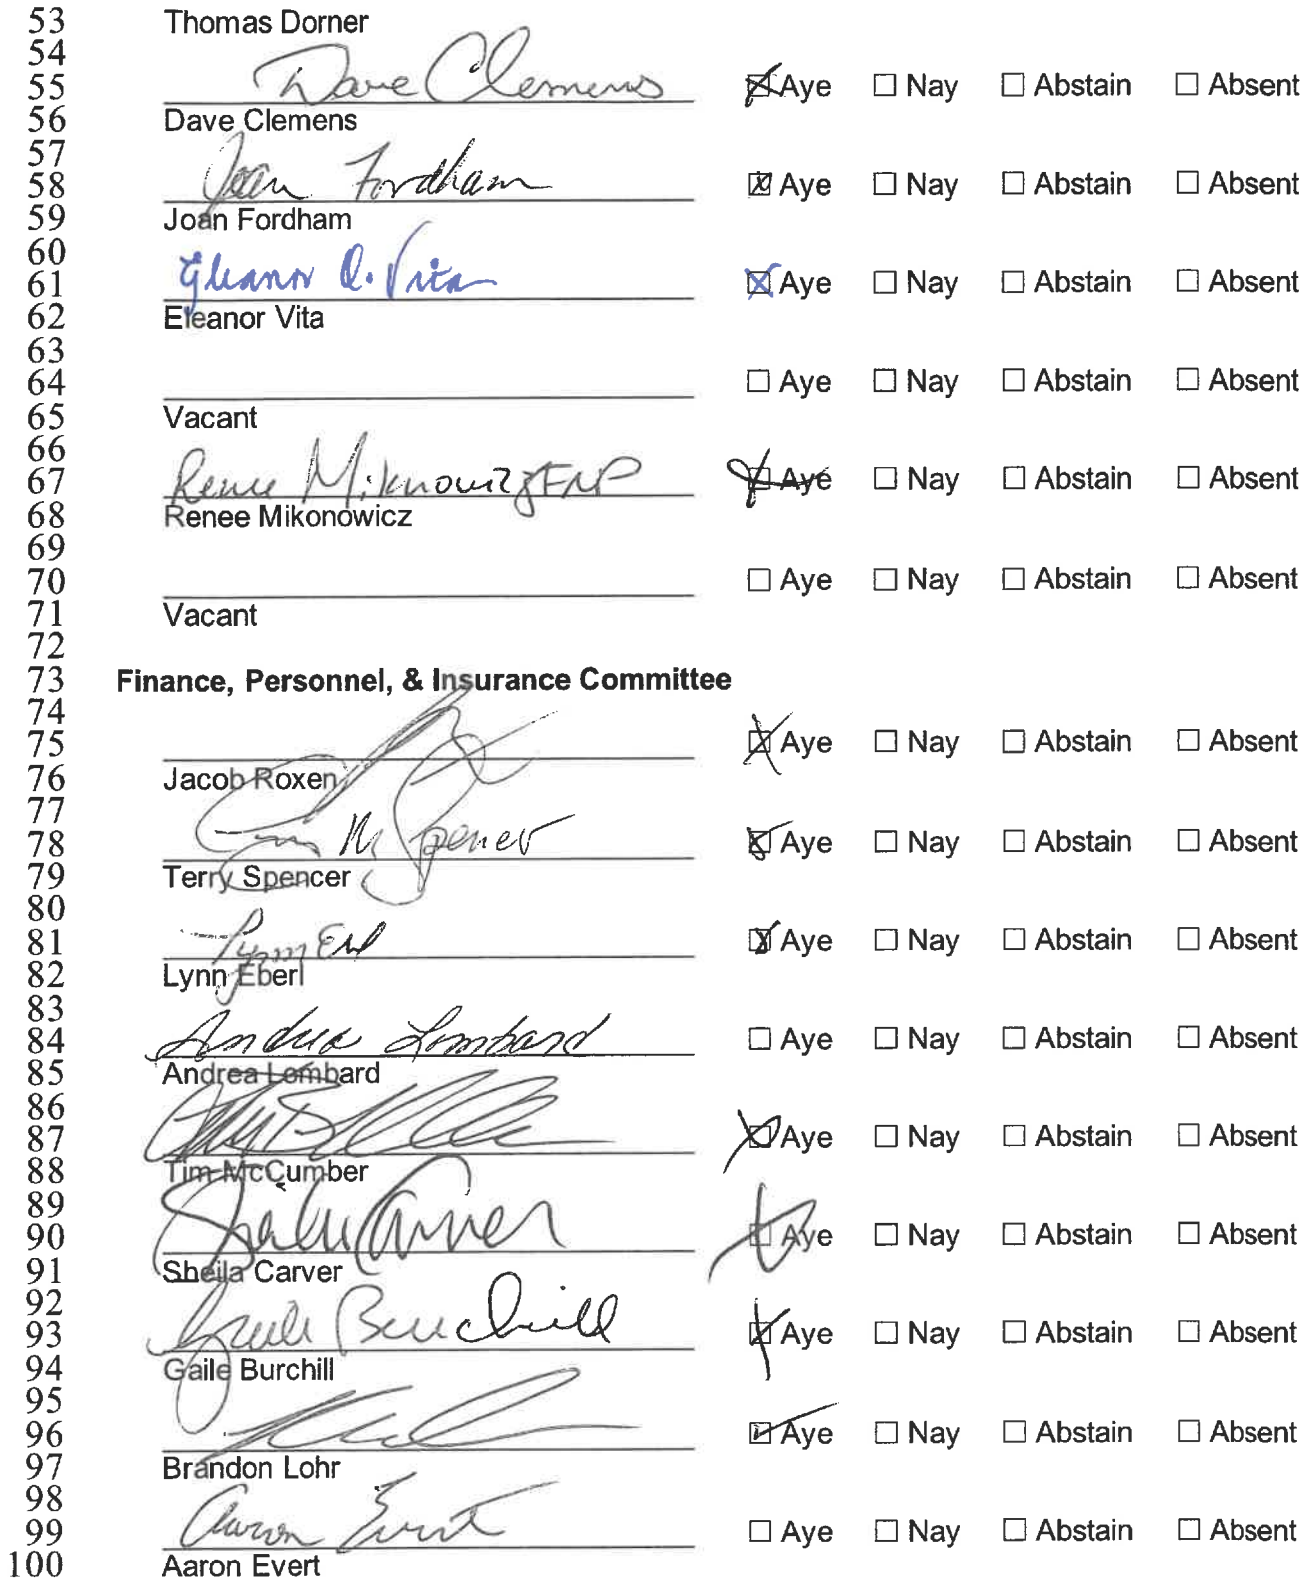 53 Thomas Dorner
54
55 Dave Clemens ☒ Aye ☐ Nay ☐ Abstain ☐ Absent
56 Dave Clemens
57
58 Joan Fordham ☒ Aye ☐ Nay ☐ Abstain ☐ Absent
59 Joan Fordham
60
61 Eleanor Q. Vita ☒ Aye ☐ Nay ☐ Abstain ☐ Absent
62 Eleanor Vita
63
64 ☐ Aye ☐ Nay ☐ Abstain ☐ Absent
65 Vacant
66
67 Renee ☒ Aye ☐ Nay ☐ Abstain ☐ Absent
68 Renee Mikonowicz
69
70 ☐ Aye ☐ Nay ☐ Abstain ☐ Absent
71 Vacant
72
73 Finance, Personnel, & Insurance Committee
74
75 ☒ Aye ☐ Nay ☐ Abstain ☐ Absent
76 Jacob Roxen
77
78 M Spencer ☒ Aye ☐ Nay ☐ Abstain ☐ Absent
79 Terry Spencer
80
81 Lynn ☒ Aye ☐ Nay ☐ Abstain ☐ Absent
82 Lynn Eberl
83
84 Andrea Lombard ☐ Aye ☐ Nay ☐ Abstain ☐ Absent
85 Andrea Lombard
86
87 ☒ Aye ☐ Nay ☐ Abstain ☐ Absent
88 Tim McCumber
89
90 Sheila Carver ☒ Aye ☐ Nay ☐ Abstain ☐ Absent
91 Sheila Carver
92
93 Gaile Burchill ☒ Aye ☐ Nay ☐ Abstain ☐ Absent
94 Gaile Burchill
95
96 ☒ Aye ☐ Nay ☐ Abstain ☐ Absent
97 Brandon Lohr
98
99 Aaron Evert ☐ Aye ☐ Nay ☐ Abstain ☐ Absent
100 Aaron Evert